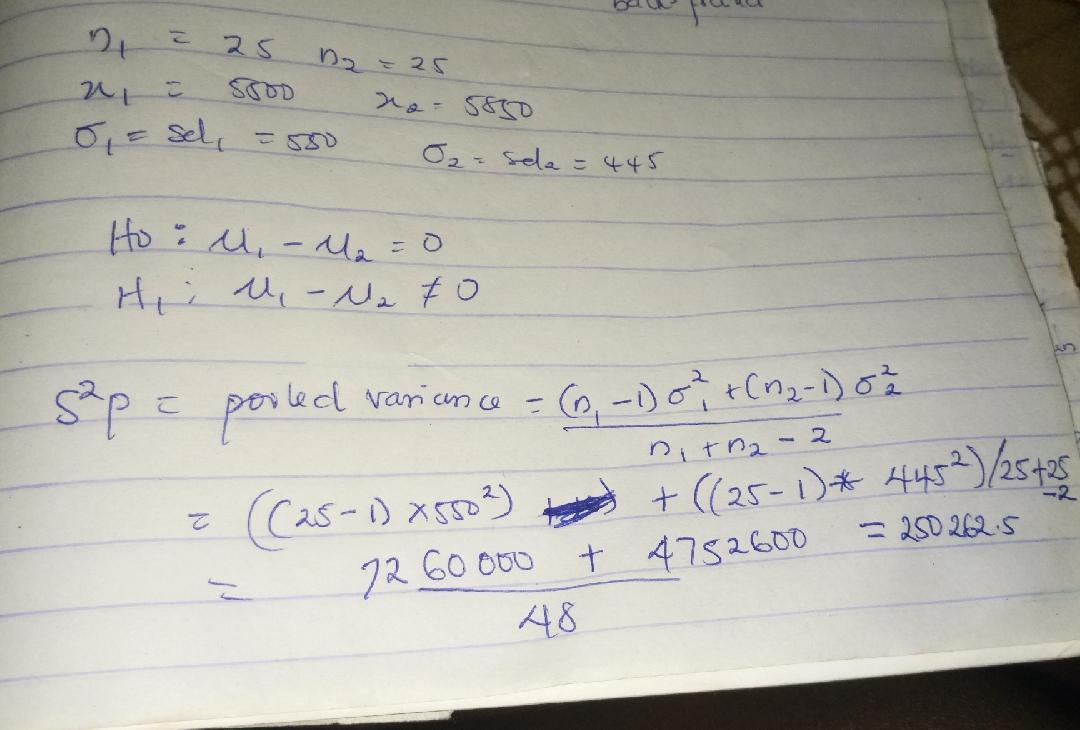 n₁ = 25 n₂ = 25
x₁ = 5500 x₂ = 5850
σ₁ = sd₁ = 550 σ₂ = sd₂ = 445
Ho : μ₁ - μ₂ = 0
H₁ : μ₁ - μ₂ ≠ 0
S²p = pooled variance = (n₁ - 1) σ₁² + (n₂ - 1) σ₂²
n₁ + n₂ - 2
= ((25 - 1) × 550²) + ((25 - 1) * 445²)/25+25-2
= 7260000 + 4752600 = 250262.5
48